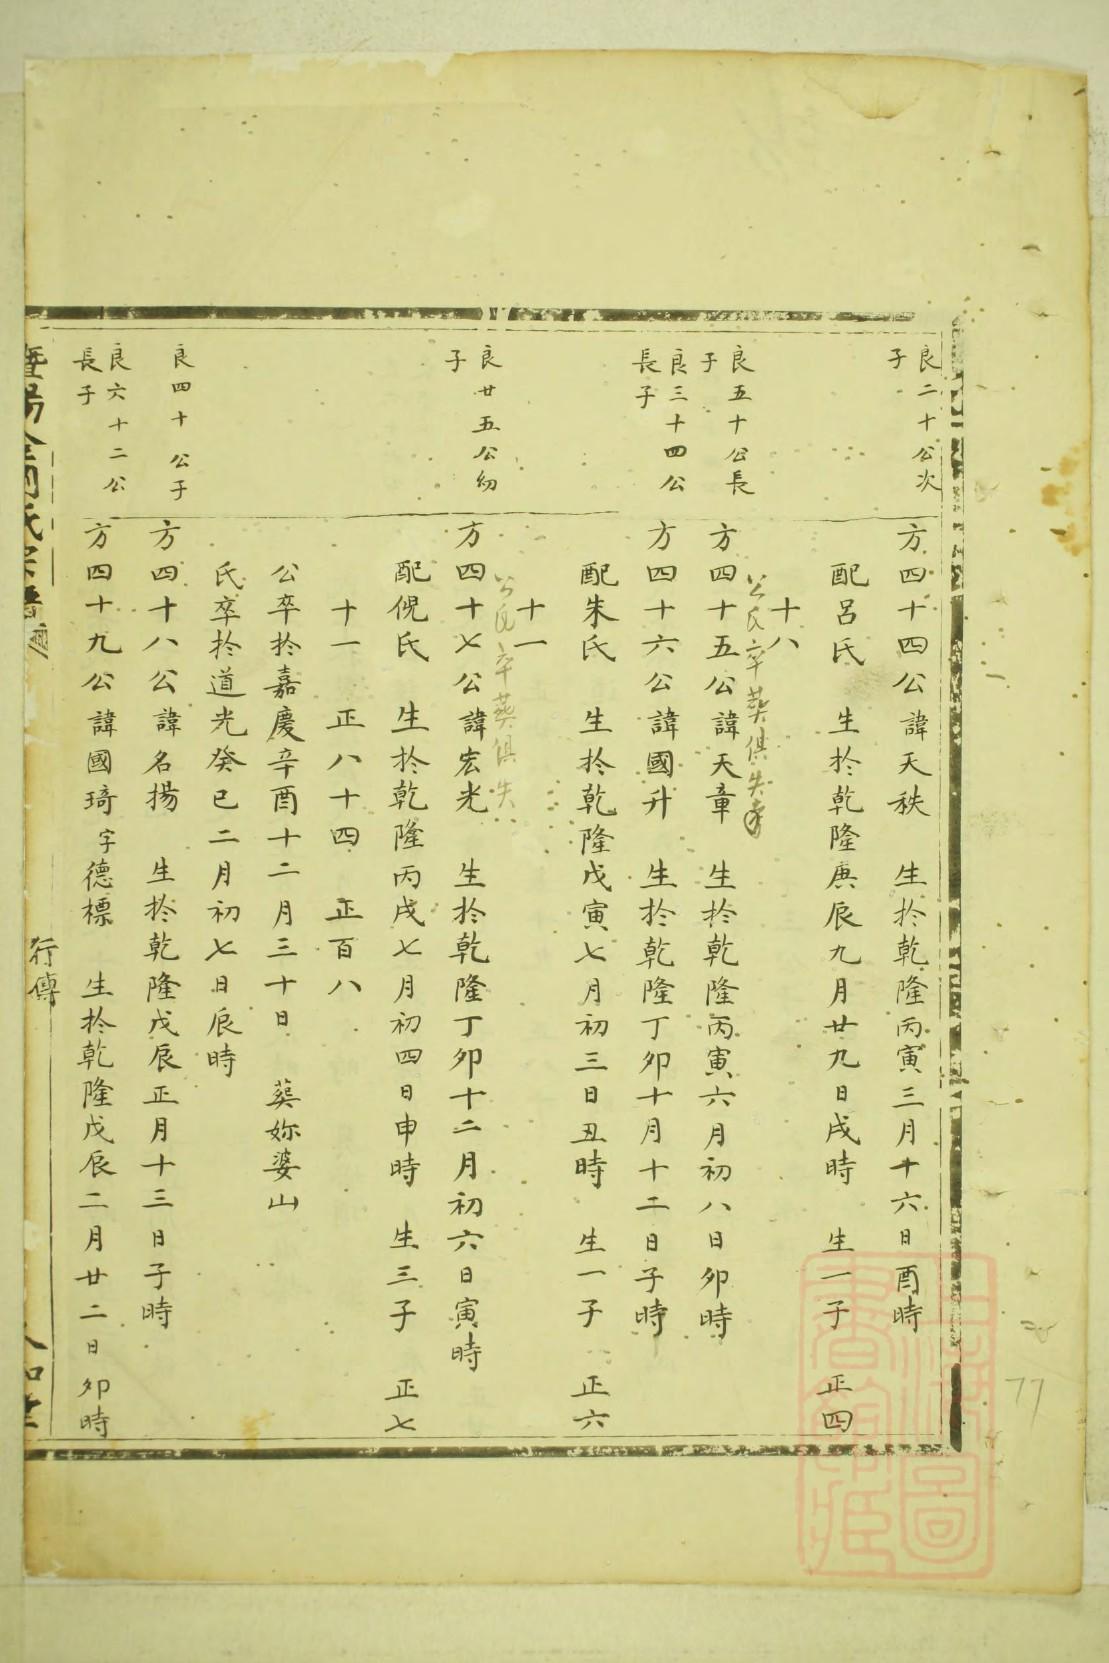 良二十公次
子
方四十四公諱天秩　生於乾隆丙寅三月十六日酉時
配呂氏　生於乾隆庚辰九月廿九日戌時　生一子　正四
十八
公氏卒葬俱失考
良五十公長
子
方四十五公諱天章　生於乾隆丙寅六月初八日卯時
良三十四公
長子
方四十六公諱國升　生於乾隆丁卯十月十二日子時
配朱氏　生於乾隆戊寅七月初三日丑時　生一子　正六
十一
公氏卒葬俱失
良廿五公幼
子
方四十七公諱宏光　生於乾隆丁卯十二月初六日寅時
配倪氏　生於乾隆丙戌七月初四日申時　生三子　正七
十一　正八十四　正百八
公卒於嘉慶辛酉十二月三十日　葬妳婆山
氏卒於道光癸巳二月初七日辰時
良四十公子
方四十八公諱名揚　生於乾隆戊辰正月十三日子時
良六十二公
長子
方四十九公諱國琦字德標　生於乾隆戊辰二月廿二日卯時
暨陽
氏宗譜
行傳
77
上海圖
書館藏